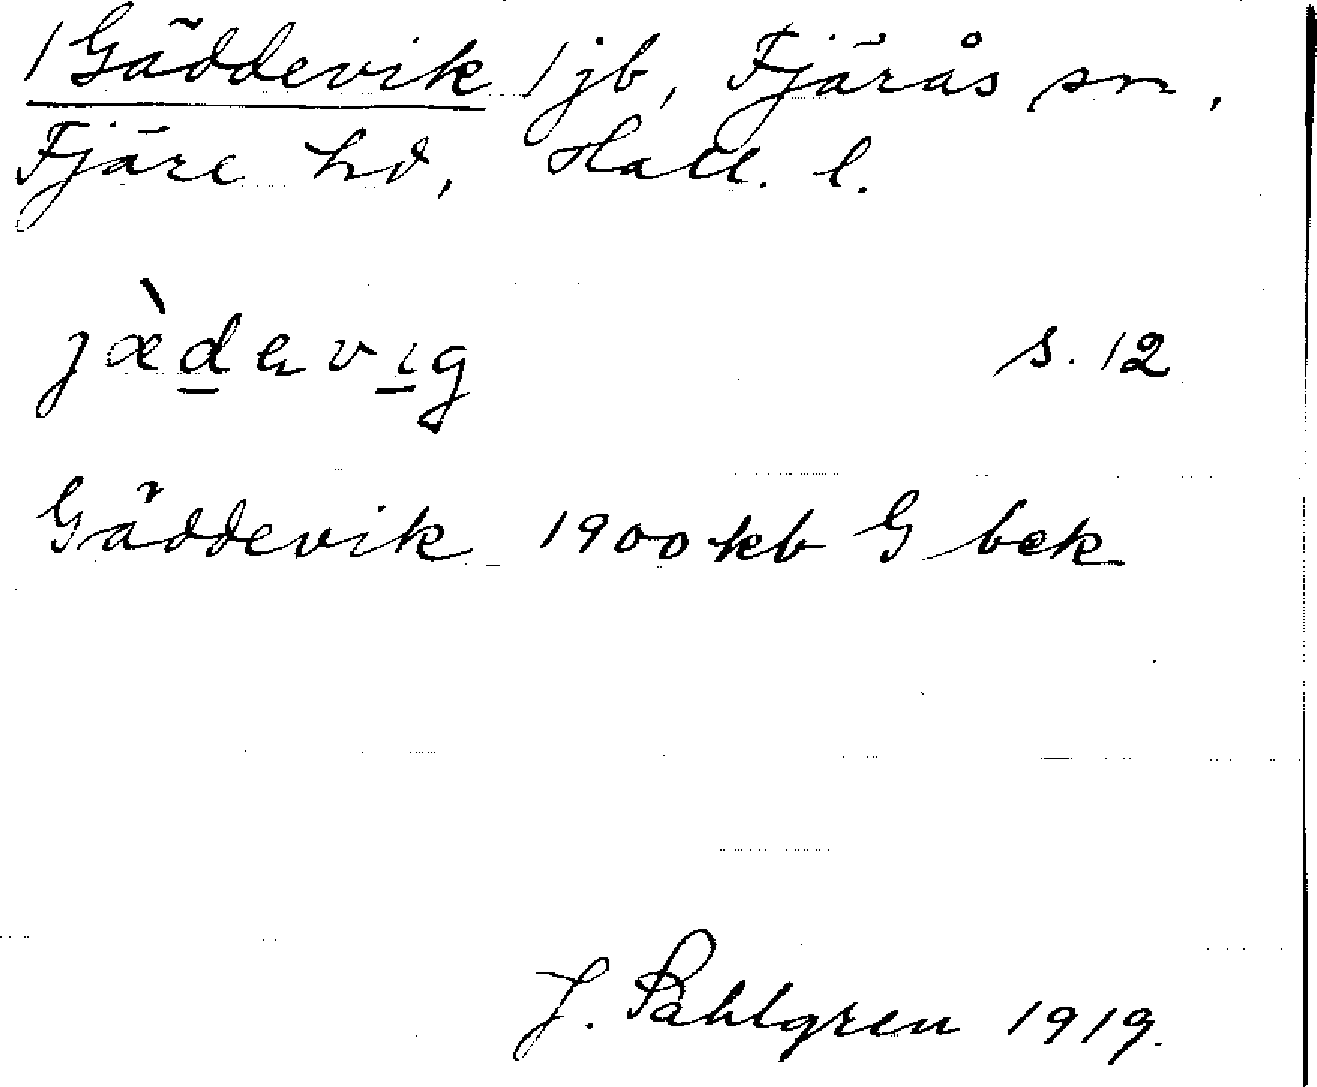 1 Gäddevik 1 jb, Fjärås sn,
Fjäre hd, Hall. l.
jæ̀dəvıg s. 12
Gäddevik 1900 kb G bek
J. Sahlgren 1919.